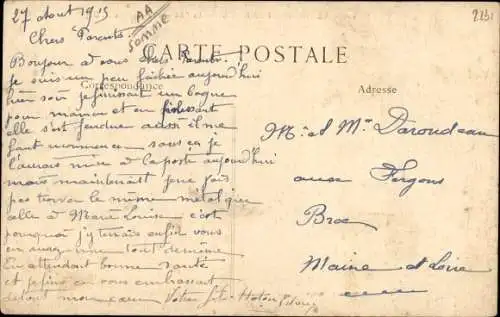 27 Aout 1915
AA
SOMME
2131
Chers Parents
CARTE POSTALE
Correspondance
Adresse
Bonjour à vous chers Parents
je suis un peu fachée aujourd'hui
hier soir je finissait un bague
pour maman et en
elle s'est fendue aussi il me
faut recommencer sans ça je
l'aurais mise à la poste aujourd'hui
mais maintenant je ne sais
pas trouver le même métal que
celle à Marie Louise c'est
pourquoi j'y tenais enfin vous
en aurez une tout de même
En attendant bonne santé
et je finis en vous embrassant
de tout mon cœur Votre fils
M. et Mme Daroudeau
aux Fergons
Broc
Maine et Loire